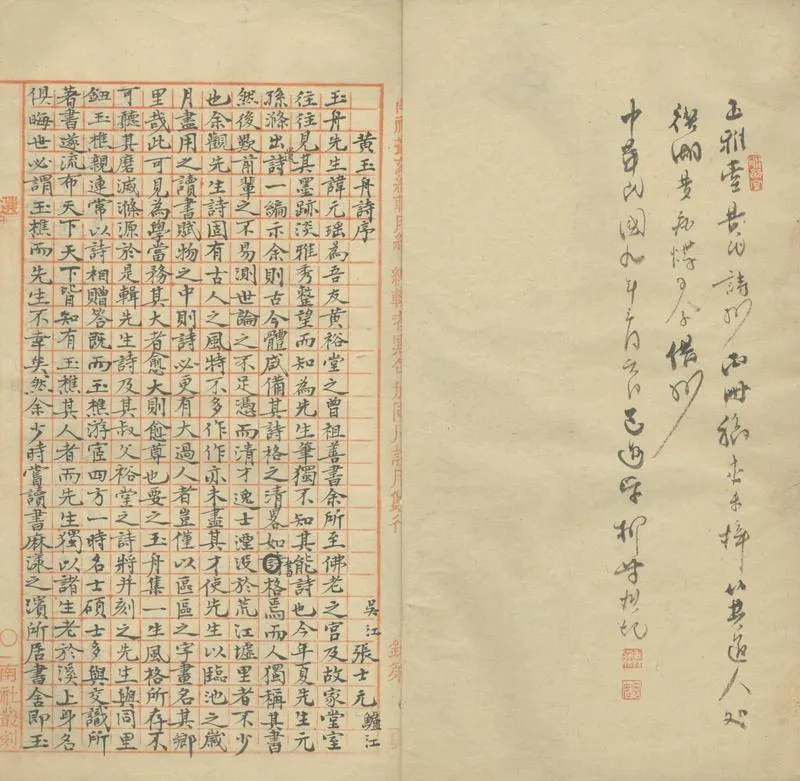 玉雅堂黃氏詩鈔兩冊稿本未梓
中華民國九年
黃玉舟詩序
吳江張士元鱸江
玉舟先生諱元瑶為吾友黃裕堂之曾祖善書余所至佛老之宫及故家堂室
往往見其墨跡淡雅秀整望而知為先生筆獨不知其能詩也今年夏先生元
孫滌出詩一編示余則古今體咸備其詩格之清畧如書格焉而人獨稱其書
然後歎前輩之不易測世論之不足憑而清才逸士湮没於荒江墟里者不少
也余觀先生詩固有古人之風特不多作作亦未盡其才使先生以臨池之歲
月盡用之讀書賦物之中則詩必更有大過人者豈僅以區區之字畫名其鄉
里哉此可見為學當務其大者愈大則愈尊也要之玉舟集一生風格所存不
可聽其磨滅滌源於是輯先生詩及其叔父裕堂之詩將并刻之先生與同里
鈕玉樵親連常以詩相贈答既而玉樵游宦四方一時名士碩士多與交識所
著書遂流布天下天下皆知有玉樵其人者而先生獨以諸生老於溪上身名
俱晦世必謂玉樵而先生不幸矣然余少時嘗讀書麻漾之濱所居書舍即玉
南社叢刻